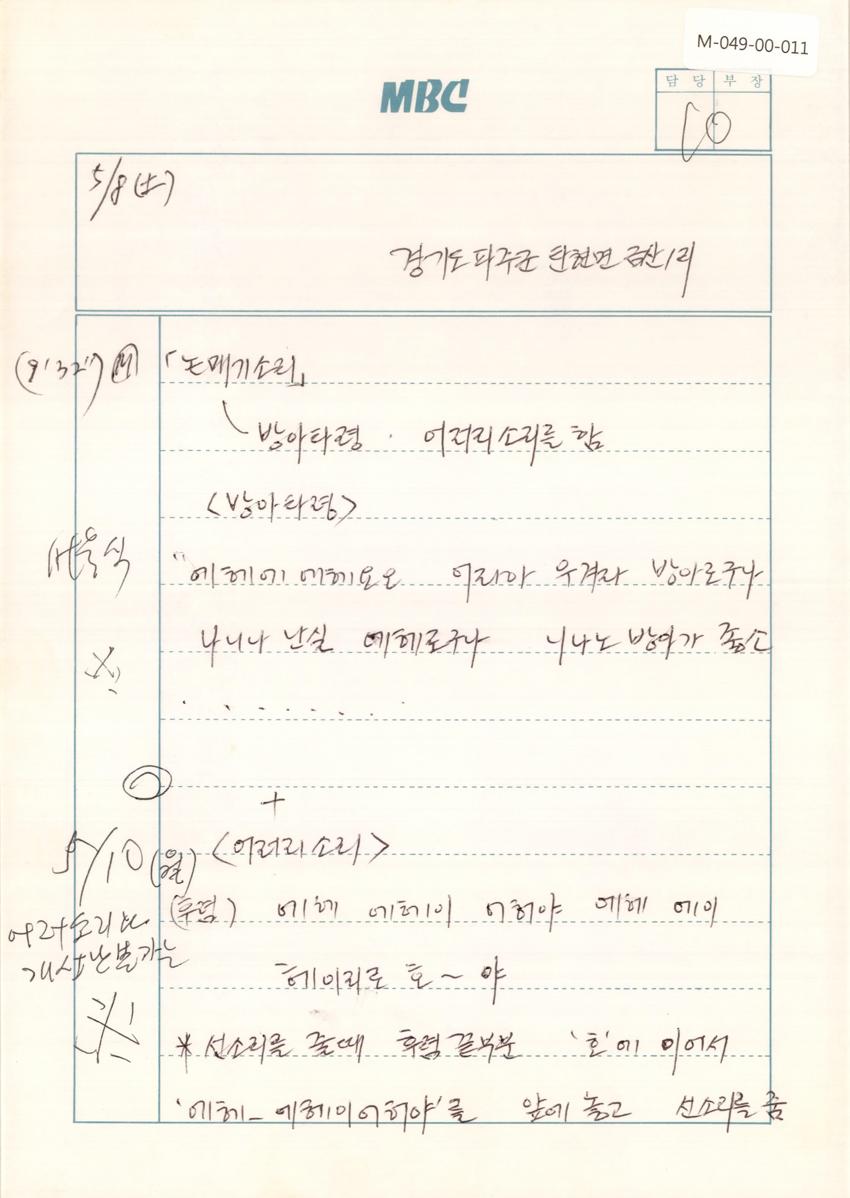 M-049-00-011
MBC
담 당 부 장
5/8 (土)
경기도 파주군 탄현면 금산1리
(9'32") M 「논매기소리」
방아타령 · 어러리소리를 함
<방아타령>
"에헤에 에헤요오 어리아 우겨라 방아로구나
나니나 난실 에헤로구나 니나노 방아가 좋소
· · · · · · ·
+
5/10 (월) <어러리소리>
(후렴) 에헤 에헤이 어허야 에헤 에이
헤이리로 호~ 야
* 선소리를 줄때 후렴 끝부분 '호'에 이어서
'에헤– 에헤이어허야'를 앞에 놓고 선소리를 줌